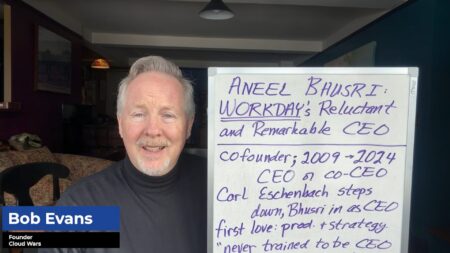 ANEEL BHUSRI:
WORKDAY's Reluctant
and Remarkable CEO
cofounder; 2009 → 2024
CEO or co-CEO
Carl Eschenbach steps
down, Bhusri in as CEO
first love: prod. + strategy
"never trained to be CEO
Bob Evans
Founder
Cloud Wars